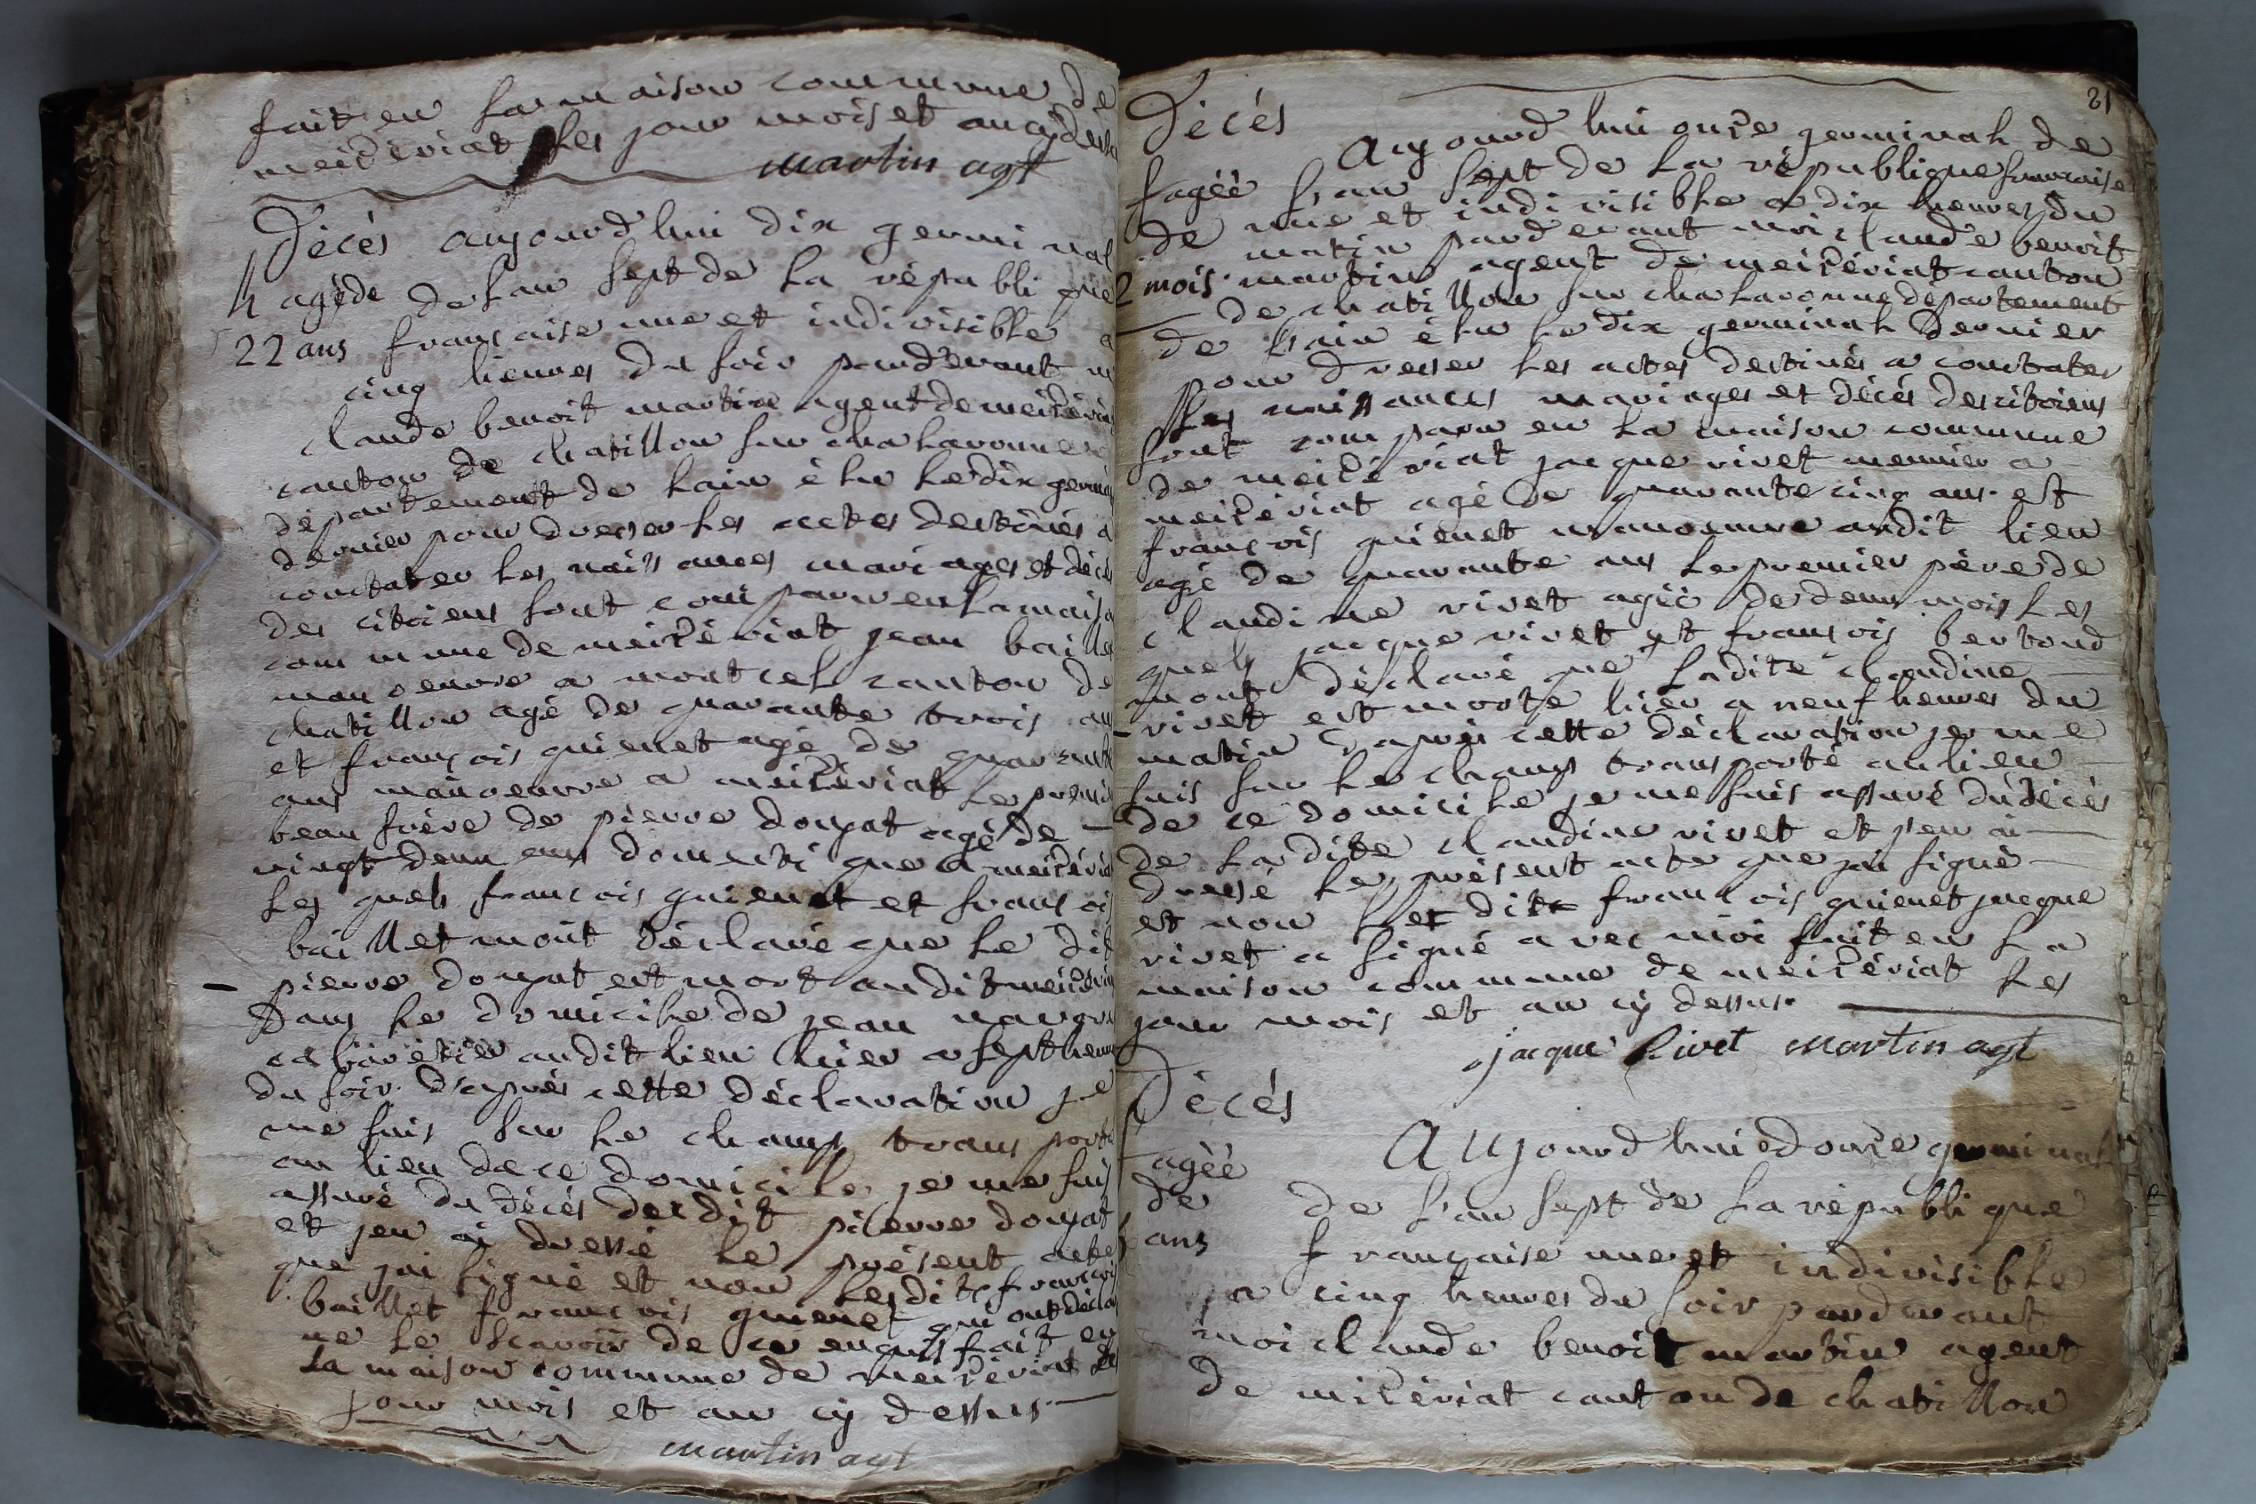 fait en la maison commune de
meizériat les jour mois et an cydessus
martin agt
Décés aujourd'hui dix germinal
h agéde de l'an sept de la république
22 ans française une et indivisible a
cinq heures du soir pardevant m
claude benoit martin agent de meizéria
canton de chatillon sur chalaronne
département de lain élu le dix germin
dernier pour dresser les actes destinés a
constater les naissances mariages et décés
des citoiens sont comparu en la maiso
commune de meizériat jean baillet
manoeuvre a montcel canton de
chatillon agé de quarante trois an
et françois guienet agé de quarante
ans manoeuvre a meizériat le premie
beau frère de pierre douyat agé de
vingt deux ans domestique a meizéria
les quels françois guienet et françois
baillet mont déclaré que le dit
pierre douyat est mort audit meizéria
dans le domicile de jean
cabarétier audit lieu hier a sept heures
du soir d'après cette déclaration je
me suis sur le champ transporté
au lieu de ce domicile je me suis
assuré du décés du dit pierre douyat
et jen ai dressé le présent acte
que jai signé et non lesdits françois
baillet françois guienet qui ont décla
ne le scavoir de ce enquis fait en
la maison commune de meizériat les
jour mois et an cy dessus
martin agt
21
Décés
Aujourd'hui onze germinal de
f agéé l'an sept de la république francaise
de une et indivisible a dix heures du
matin pardevant moi claude benoit
2 mois martin agent de meizériat canton
de chatillon sur chalaronne departement
de lain élu le dix germinal dernier
pour dresser les actes destinés a constater
les naissances mariages et décés des citoiens
sont comparu en la maison commune
de meizériat jacque rivet meunier a
meizériat agé de quarante cinq ans et
françois guienet manoeuvre audit lieu
agé de quarante ans le premier père de
claudine rivet agéé de deux mois les
quels jacque rivet et françois bertoud
mont déclaré que ladite claudine
rivet est morte hier a neuf heures du
matin d'après cette déclaration je me
suis sur le champ transporté au lieu
de ce domicile je me suis assuré du décés
de la dite claudine rivet et jen ai
dressé le présent acte que jai signé
et non les dits françois guienet jacque
rivet a signé avec moi fait en la
maison commune de meizériat les
jour mois et an cy dessus
jacque Rivet martin agt
Décés
Aujourd'hui douze germinal
f agéé
de de l'an sept de la république
ans française une et indivisible
a cinq heures du soir pardevant
moi claude benoit martin agent
de mizériat canton de chatillon